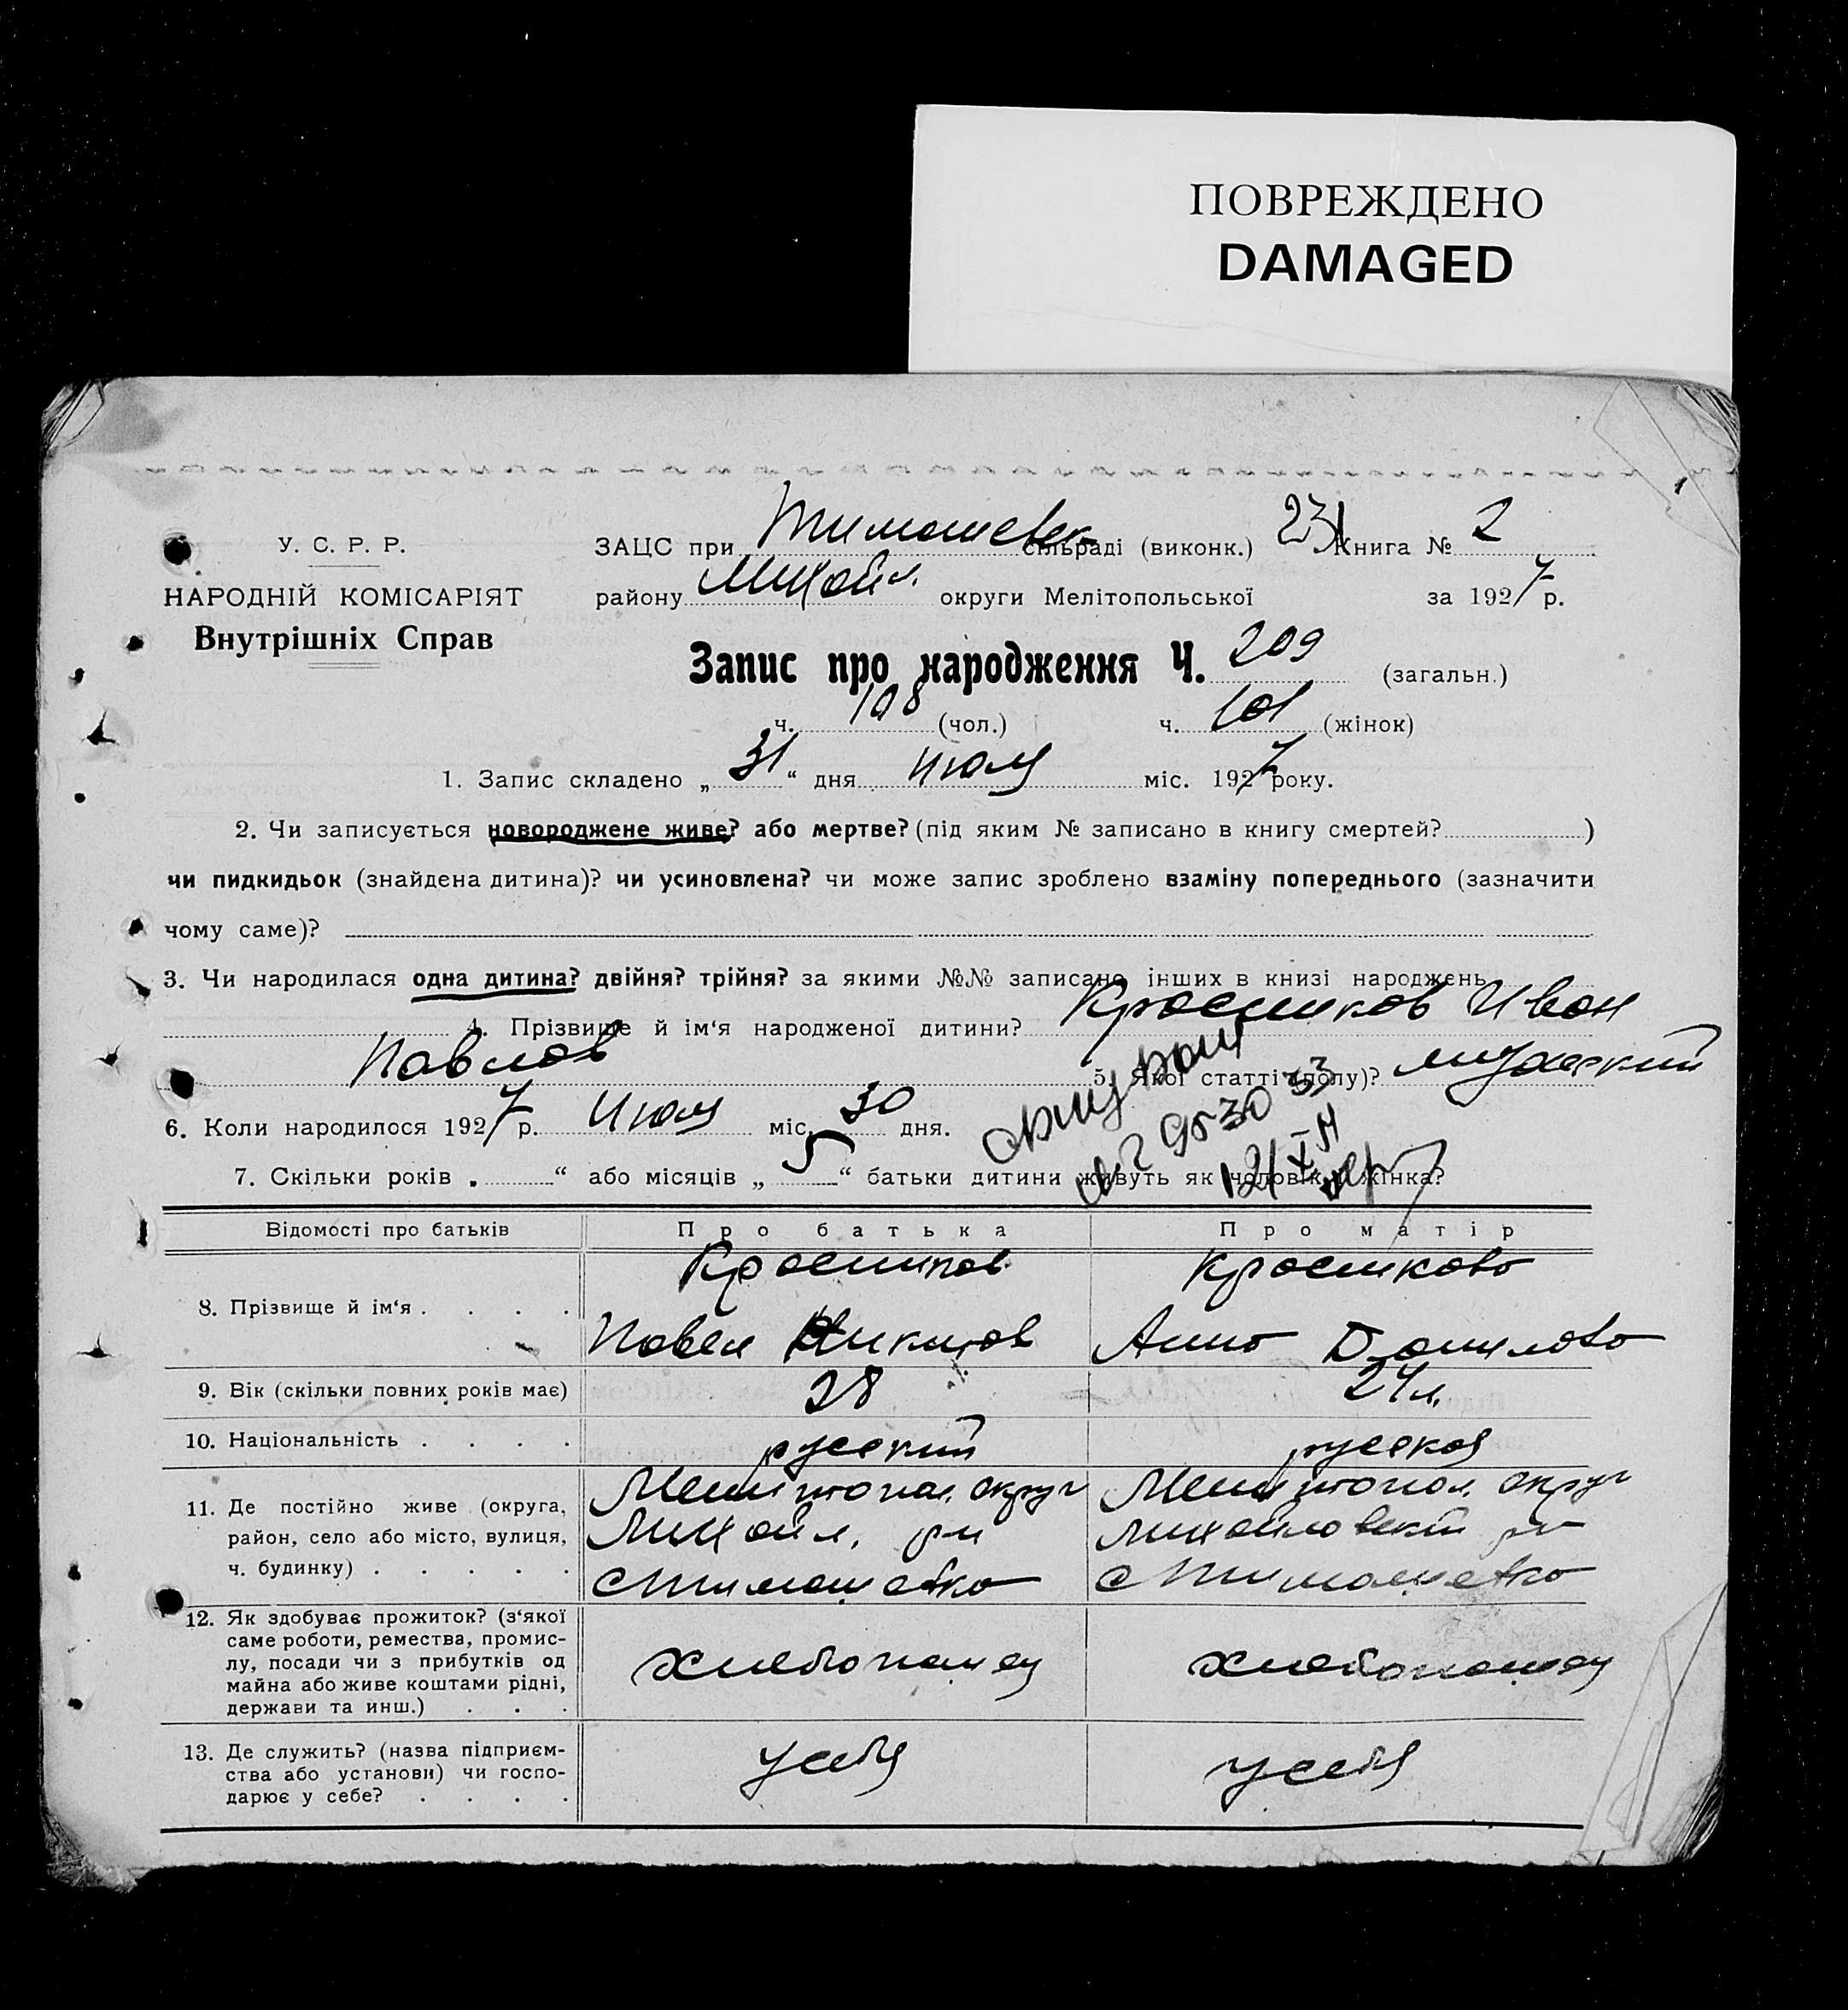 ПОВРЕЖДЕНО
DAMAGED
У. С. Р. Р.
НАРОДНІЙ КОМІСАРІЯТ
Внутрішніх Справ
ЗАЦС при Тимошевск сільраді (виконк.) 231 Книга № 2
району Михайл. округи Мелітопольської за 1927 р.
Запис про народження Ч. 209 (загальн.)
ч. 108 (чол.) ч. 101 (жінок)
1. Запис складено „ 31 “ дня июля міс. 1927 року.
2. Чи записується новороджене живе? або мертве? (під яким № записано в книгу смертей? )
чи пидкидьок (знайдена дитина)? чи усиновлена? чи може запис зроблено взаміну попереднього (зазначити
чому саме)?
3. Чи народилася одна дитина? двійня? трійня? за якими №№ записано інших в книзі народжень
4. Прізвище й ім‘я народженої дитини? Красников Иван
Павлов 5. Якої статті (полу)? мужеский
6. Коли народилося 1927 р. Июля міс. 30 дня.
7. Скільки років „ “ або місяців „ 5 “ батьки дитини живуть як чоловік і жінка?
Відомості про батьків Про батька Про матір
8. Прізвище й ім‘я . . . . Красников Красникова
Павел Анна Данилова
9. Вік (скільки повних років має) 28 24 л.
10. Національність . . . . русский русская
11. Де постійно живе (округа, район, село або місто, вулиця, ч. будинку) . . . . . Мелитопол. округ Мелитопол. округ
Михайл. р-н Михайловский р-н
с Тимошевка с Тимошевка
12. Як здобуває прожиток? (з‘якої саме роботи, ремества, промислу, посади чи з прибутків од майна або живе коштами рідні, держави та инш.) . . . хлебопашец хлебопашец
13. Де служить? (назва підприємства або установи) чи господарює у себе? . . . . у себя у себя